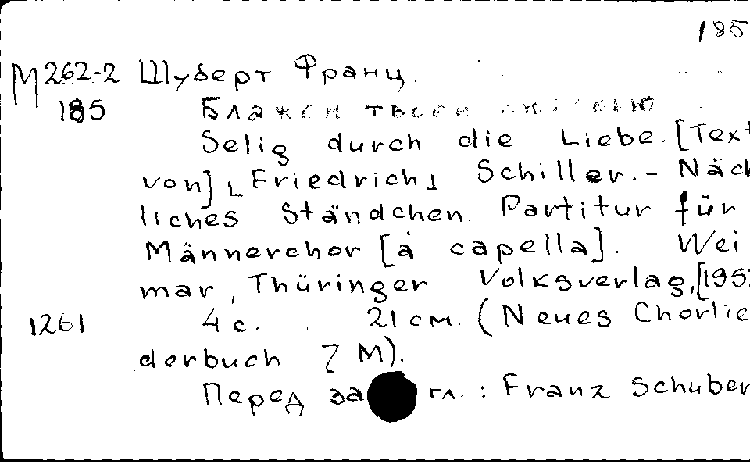 185
М262-2 Шуберт Франц.
185 Блажен твоей любовью
Selig durch die Liebe. [Text
von] Friedrich Schiller. - Näch
liches Ständchen. Partitur für
Männerchor [à capella]. Wei
mar, Thüringer Volksverlag, [195
1261 4 с. 21 см. (Neues Chorlie
derbuch 7 M).
Перед заг гл.: Franz Schuber